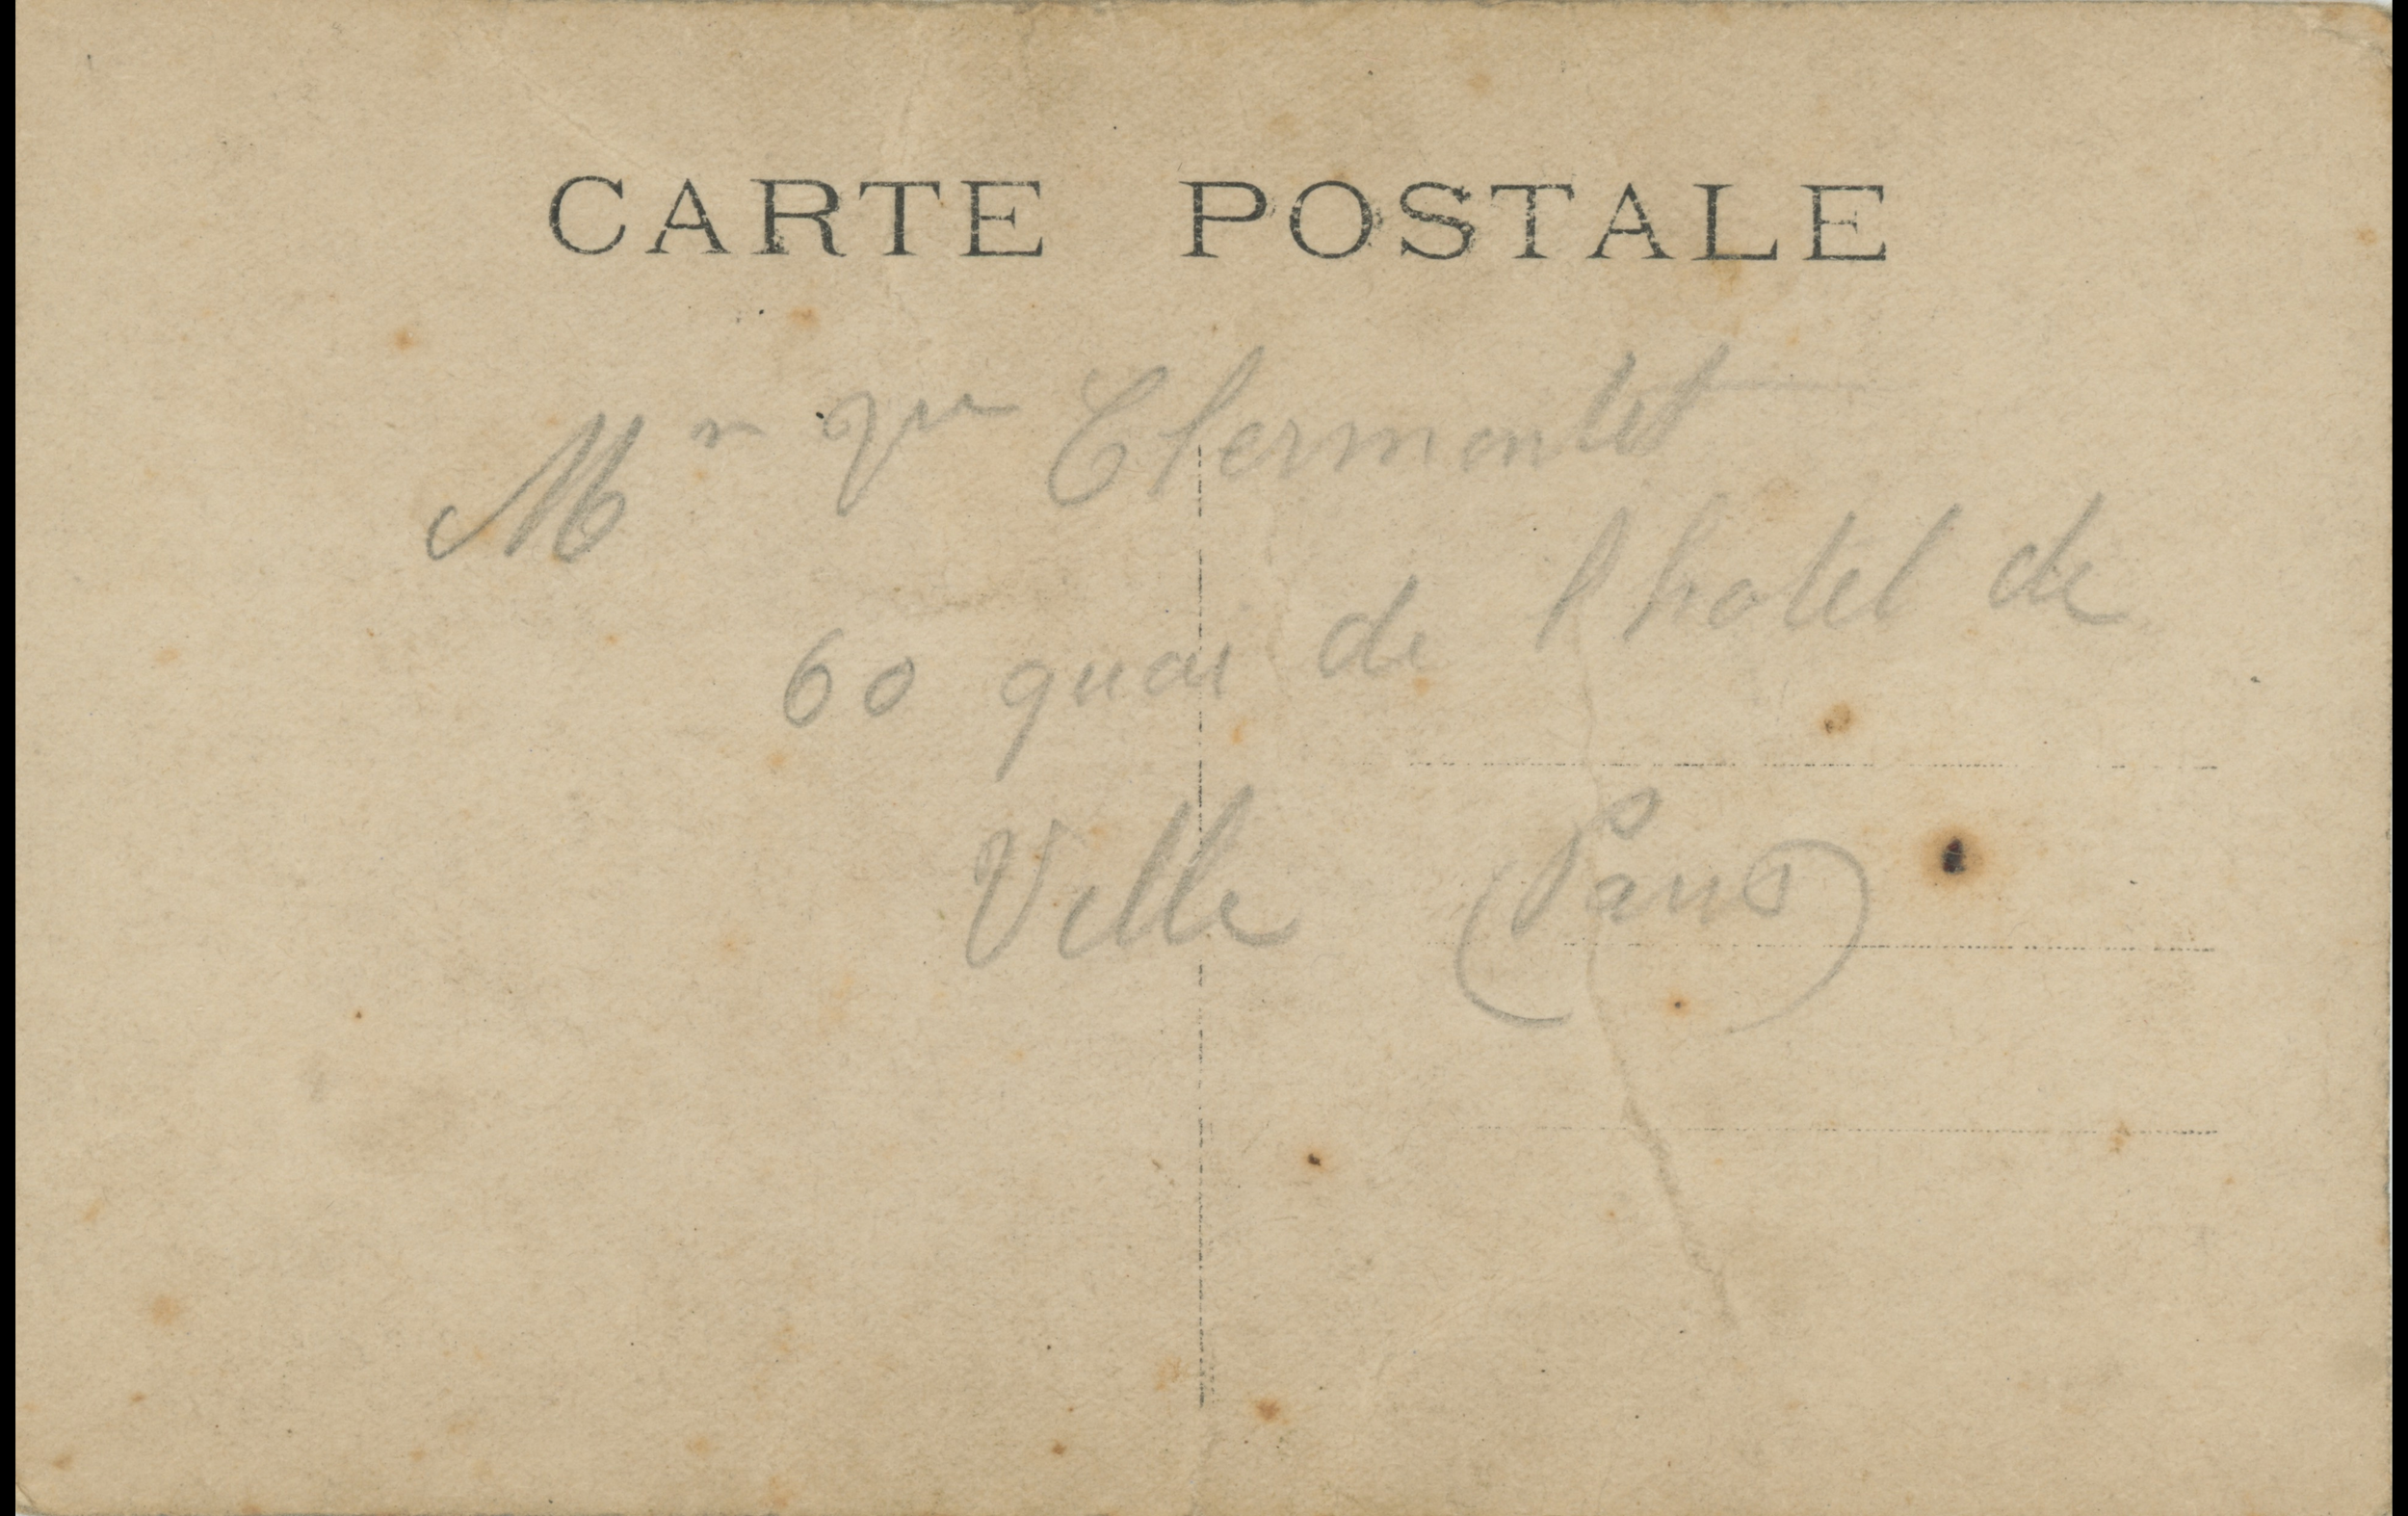 CARTE POSTALE
Mr Clermontet
60 quai de l hotel de
Ville (Paris)